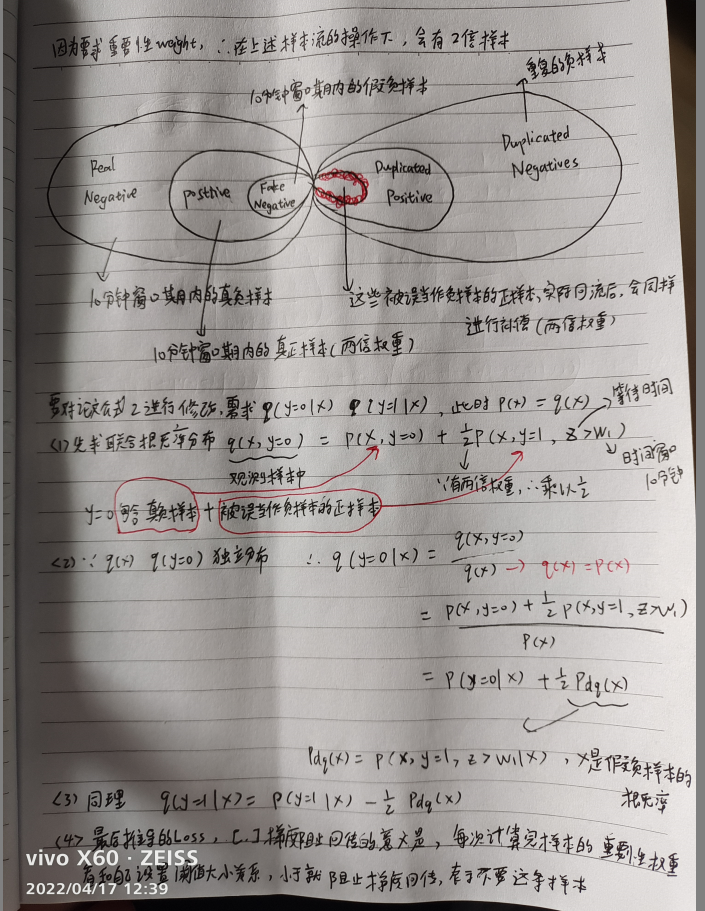 因为要求重要性weight，∴在上述样本流的操作下，会有2倍样本
10分钟窗口期内的假负样本
重复的负样本
Real
Negative
positive
Fake
Negative
Duplicated
Positive
Duplicated
Negatives
10分钟窗口期内的真负样本
这些被误当作负样本的正样本，实际回流后，会同样
进行补偿（两倍权重）
10分钟窗口期内的真正样本（两倍权重）
要对论文公式2进行修改，需求 q(y=0|x) q(y=1|x)，此时 p(x) = q(x)
等待时间
<1> 先求联合概率分布 q(x, y=0) = p(x, y=0) + ½p(x, y=1, z>w₁)
时间窗口
10分钟
观测到样本中
∵有两倍权重，∴乘以½
y=0 包含 真负样本 + 被误当作负样本的正样本
<2> ∵ q(x) q(y=0) 独立分布 ∴ q(y=0|x) = q(x, y=0) / q(x) → q(x) = p(x)
= p(x, y=0) + ½ p(x, y=1, z>w₁) / p(x)
= p(y=0|x) + ½ Pdq(x)
Pdq(x) = p(x, y=1, z>w₁|x)，x是假负样本的
概率
<3> 同理 q(y=1|x) = p(y=1|x) - ½ Pdq(x)
<4> 最后推导的Loss，[.] 梯度阻止回传的意义是，每次计算完样本的重要性权重
看和的设置阈值大小关系，小于就阻止梯度回传，在于不要这条样本
vivo X60 · ZEISS
2022/04/17 12:39